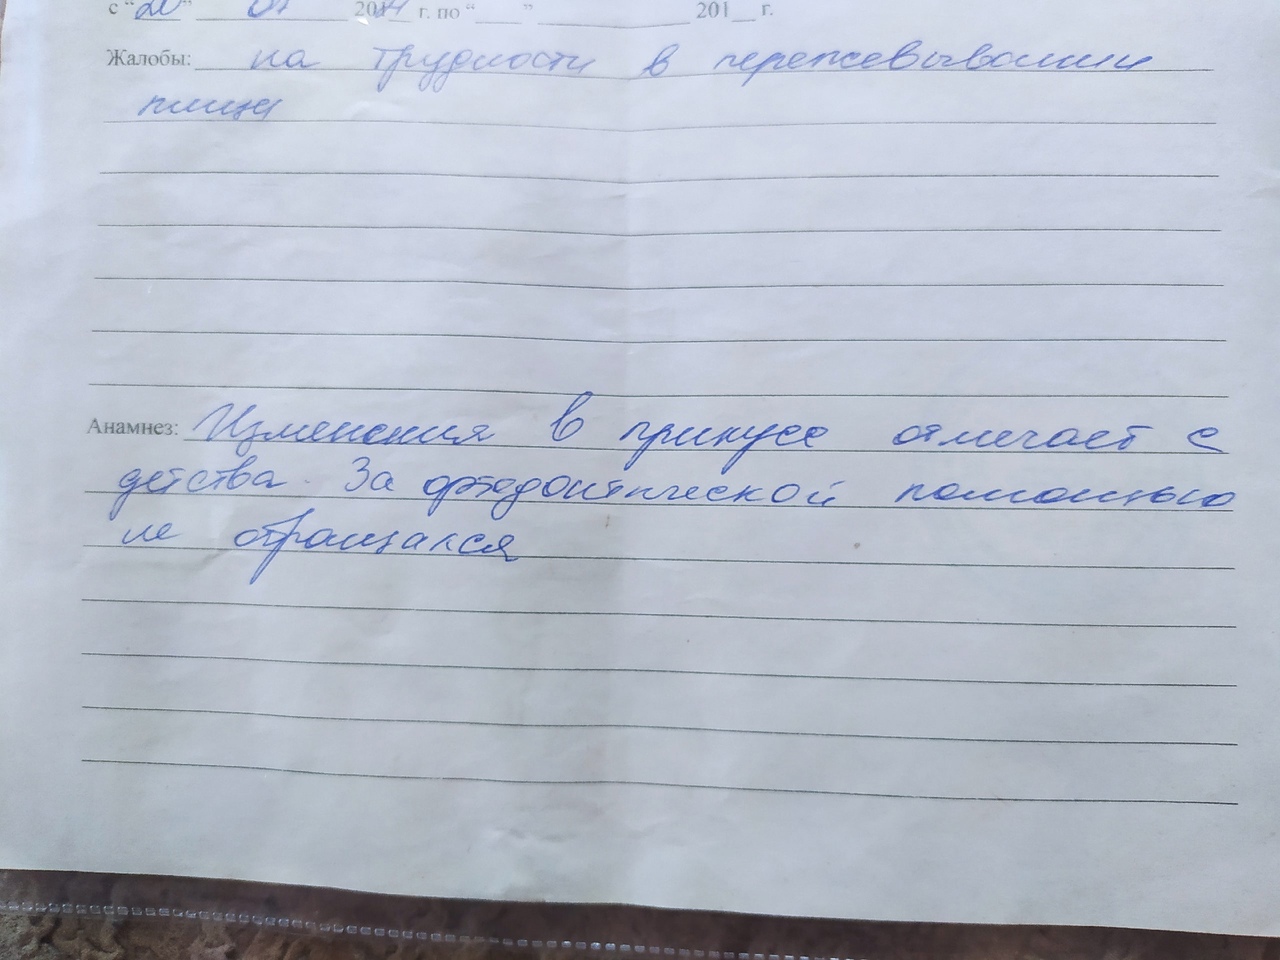 с "20" 01 2014 г. по "___" ____________ 201__ г.
Жалобы: на трудности в пережевывании
пищи
Анамнез: Изменения в прикусе отмечает с
детства. За ортодонтической помощью
не обращался